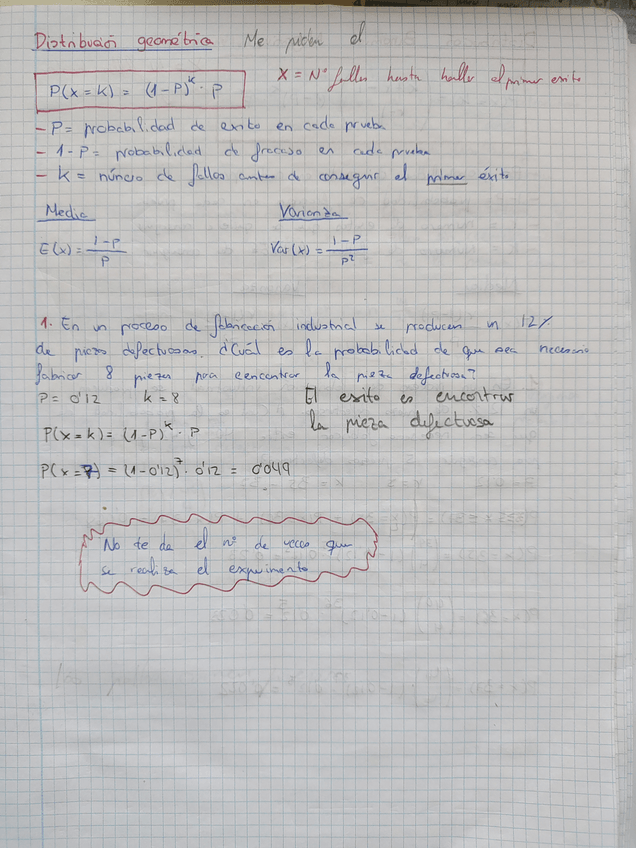 Distribución geométrica Me piden el
X = Nº fallos hasta hallar el primer exito
P(x = k) = (1-P)^k · P
- P = probabilidad de exito en cada prueba
- 1-P = probabilidad de fracaso en cada prueba
- k = número de fallos antes de conseguir el primer éxito
Media Varianza
E(x) = 1-P / P Var(x) = 1-P / P²
1. En un proceso de fabricación industrial se producen un 12%
de piezas defectuosas. ¿Cuál es la probabilidad de que sea necesario
fabricar 8 piezas para encontrar la pieza defectuosa?
P = 0'12 k = 8 El exito es encontrar
la pieza defectuosa
P(x = k) = (1-P)^k · P
P(x = 7) = (1-0'12)^7 · 0'12 = 0'049
No te da el nº de veces que
se realiza el experimento